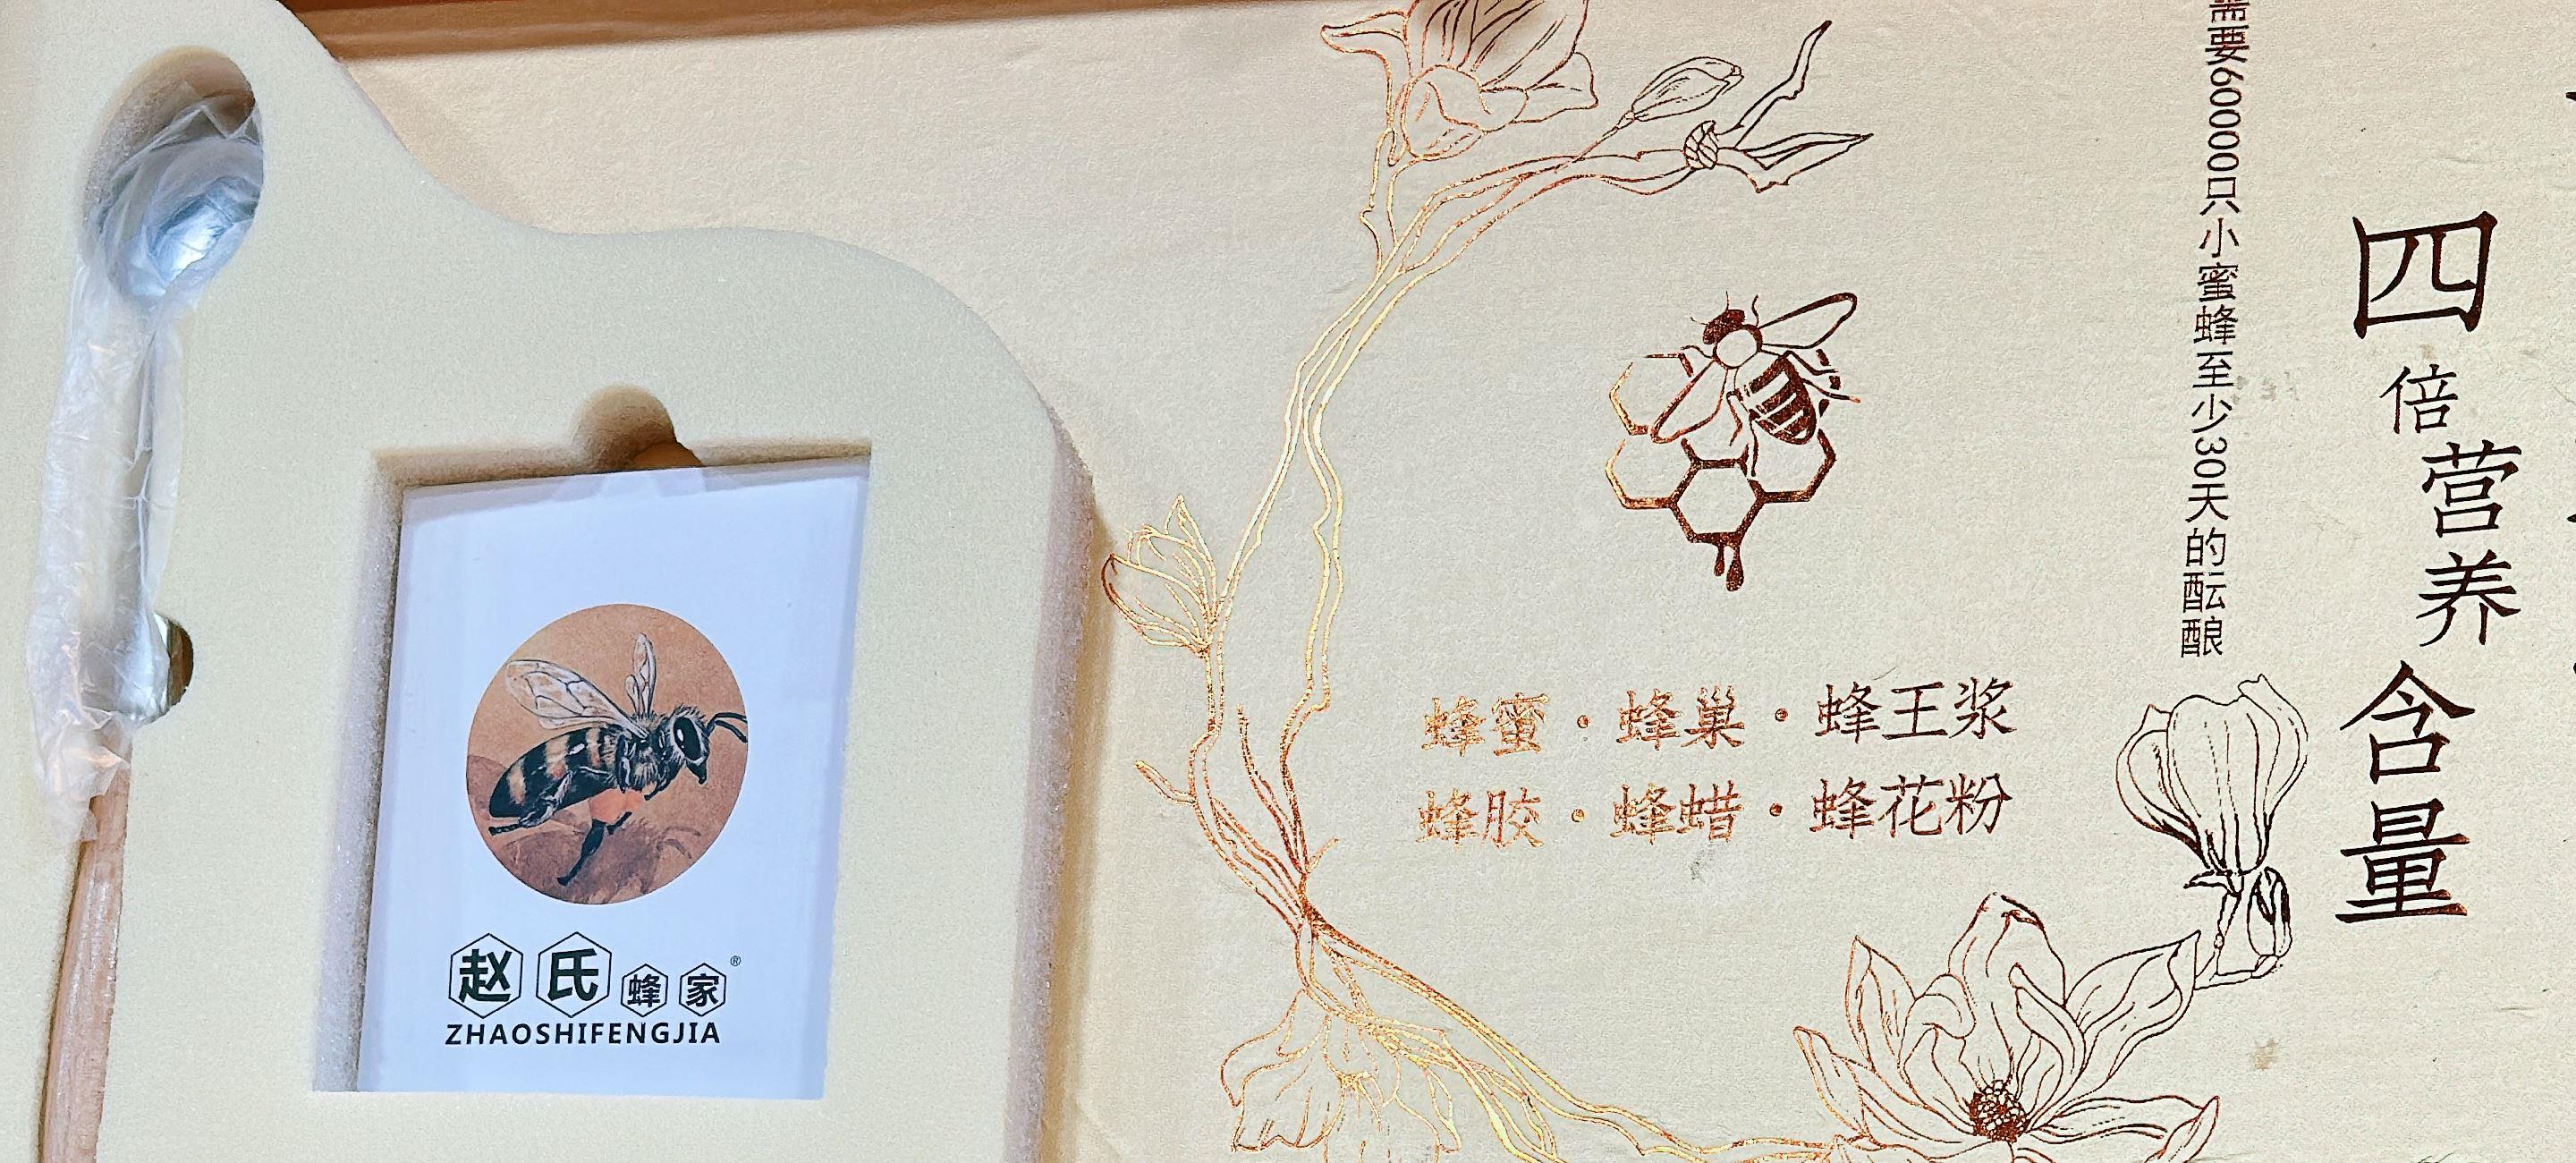 赵氏蜂家®
ZHAOSHIFENGJIA
蜂蜜·蜂巢·蜂王浆
蜂胶·蜂蜡·蜂花粉
需要60000只小蜜蜂至少30天的酝酿
四倍营养含量